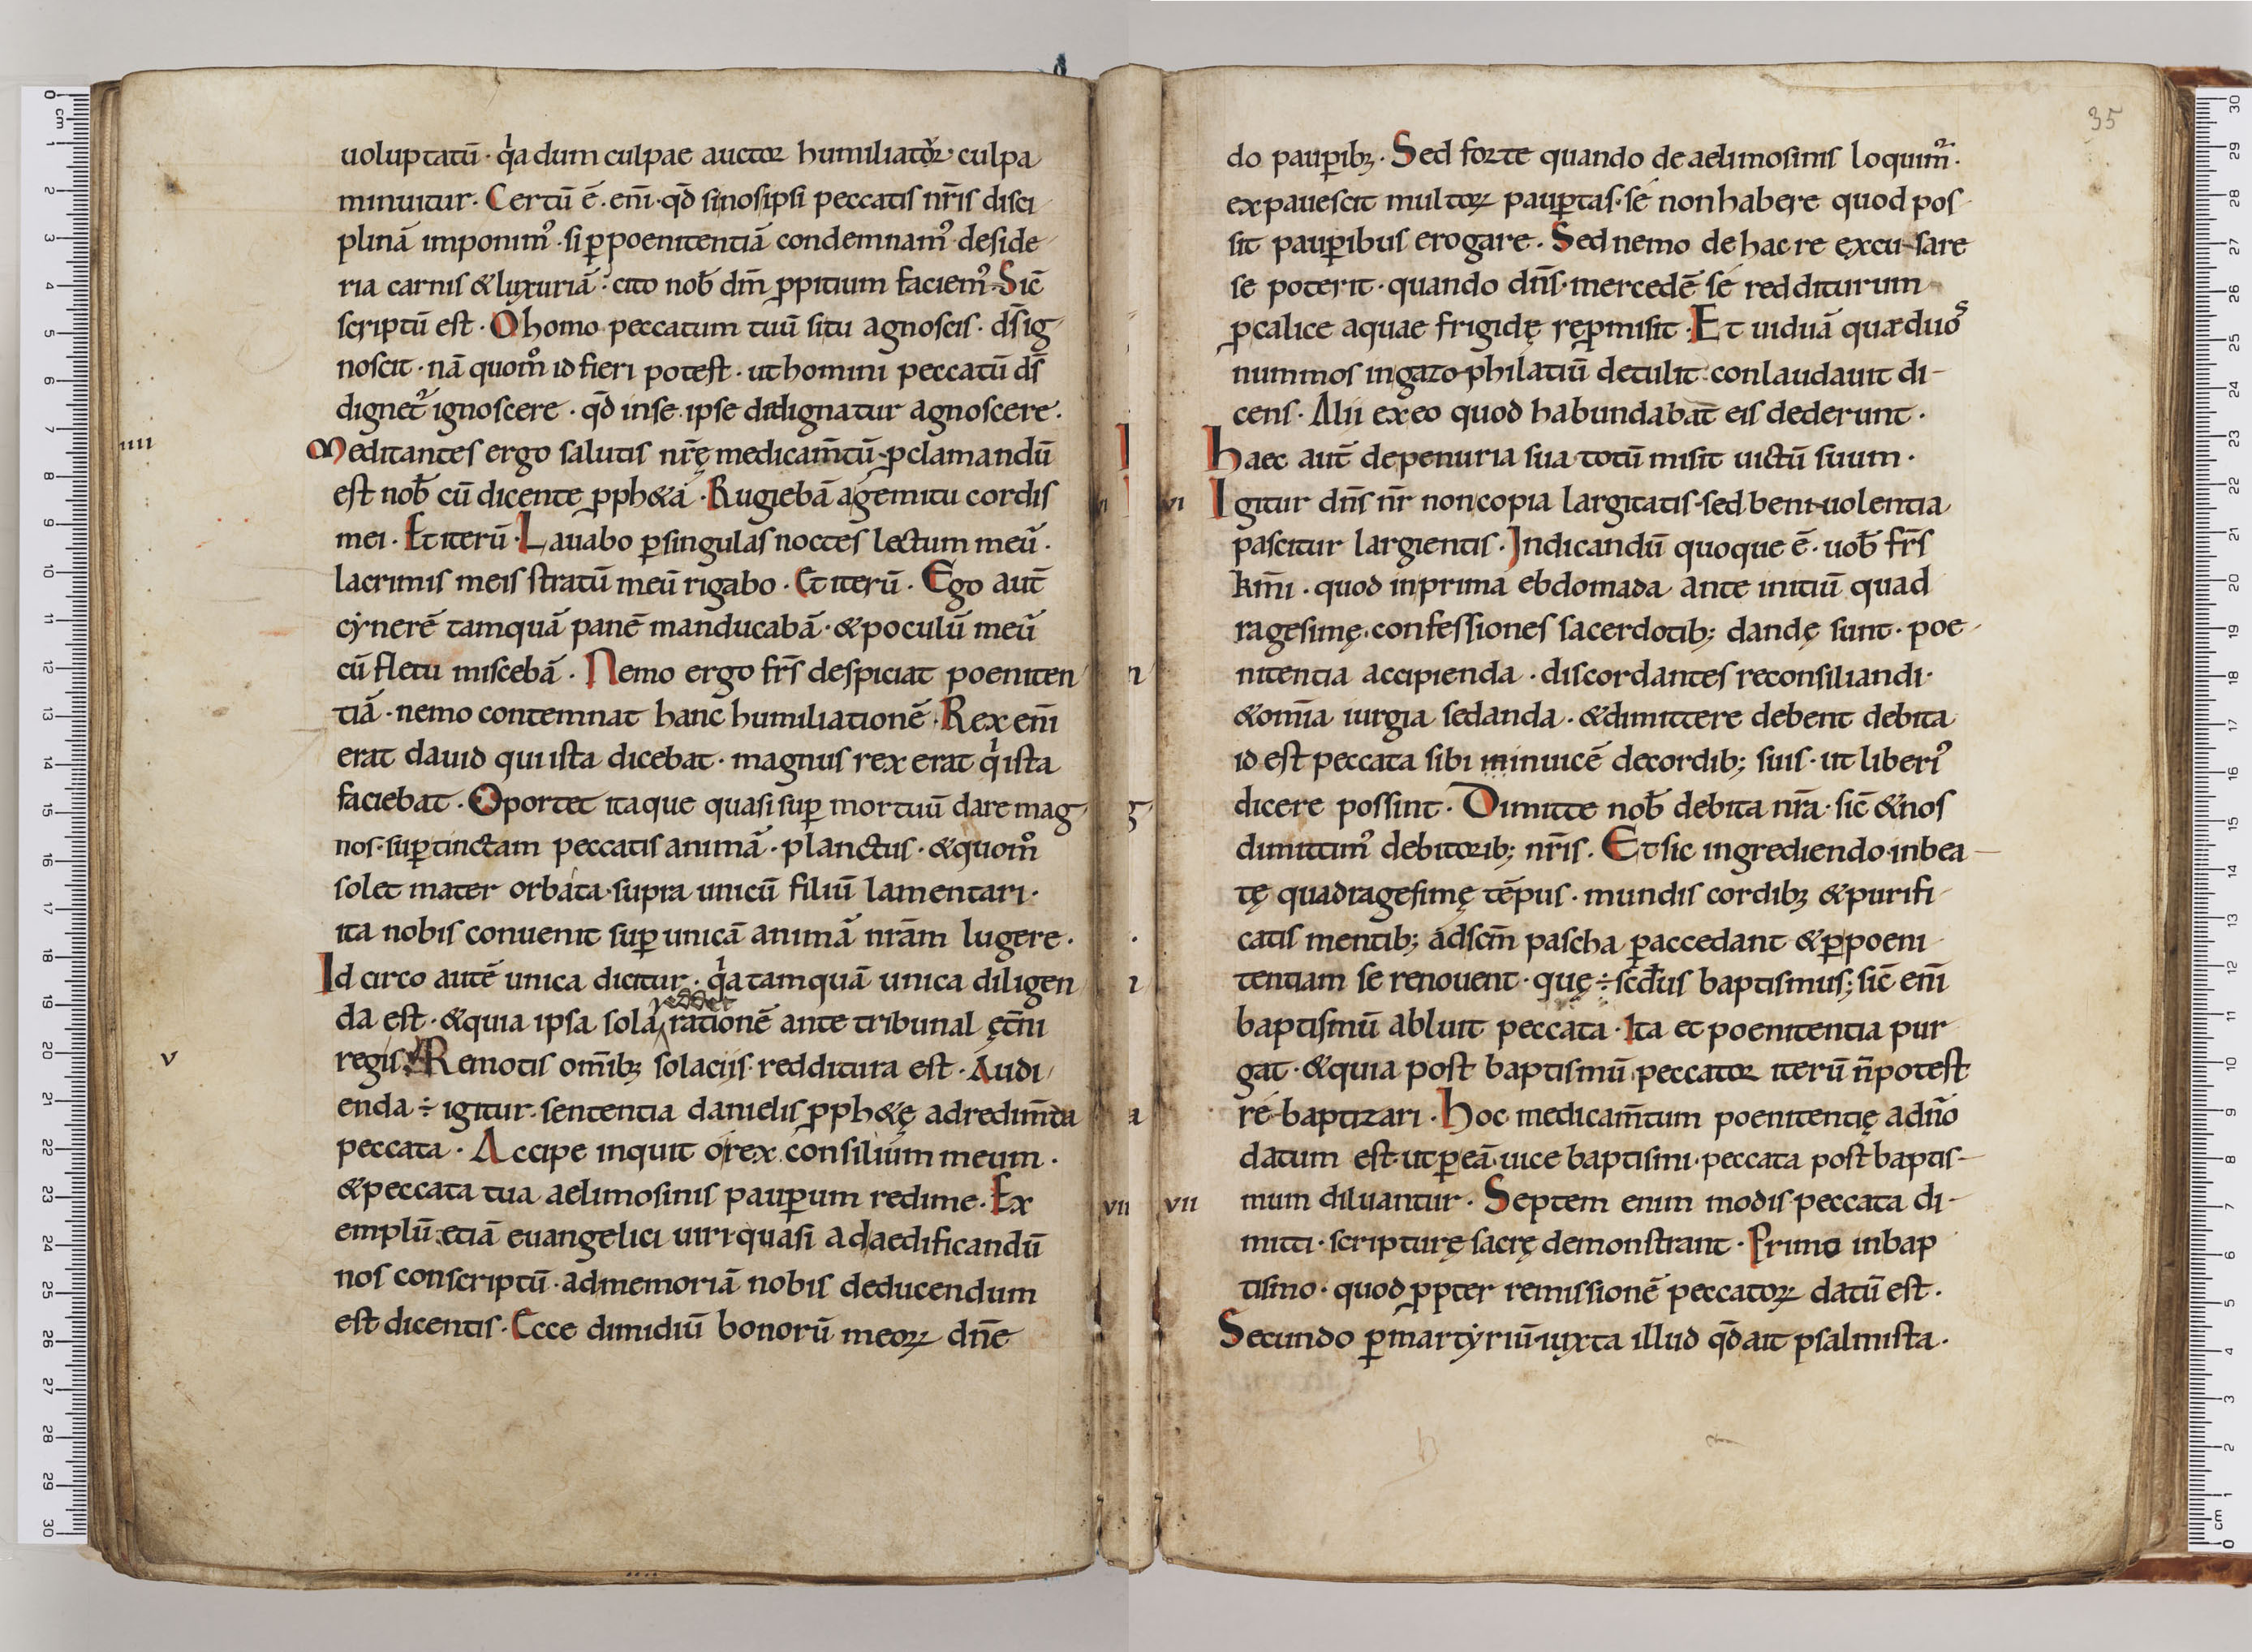 uoluptatū · qͥa dum culpae auctor humiliatᷣ · culpa
minuitur · Certū ē · enī · qd̄ si nos ipsi peccatis nr̄is disci
plinā imponimꝰ · si ꝑ poenitentiā condemnamꝰ deside
ria carnis & luxuriā · cito nob̄ dm̄ ꝓpitium faciemꝰ · Sic̄
scriptū est · O homo peccatum tuū si tu agnoscis · ds̄ ig
noscit · nā quomͦ id fieri potest · ut homini peccatū ds̄
dignetᷣ ignoscere · qd̄ in se ipse dedignatur agnoscere ·
IIII
Meditantes ergo salutis nr̄ę medicam̄tū · ꝓclamandū
est nob̄ cū dicente ꝓph&a · Rugiebā a gemitu cordis
mei · Et iterū · Lauabo ꝑ singulas noctes lectum meū ·
lacrimis meis stratū meū rigabo · Et iterū · Ego aut̄
cynerē tamquā panē manducabā · & poculū meū
cū fletu miscebā · Nemo ergo fr̄s despiciat poeniten
tiā · nemo contemnat hanc humiliationē · Rex enī
erat dauid qui ista dicebat · magnus rex erat qͥ ista
faciebat · Oportet itaque quasi suꝑ mortuū dare mag
nos · suꝑ tinctam peccatis animā · planctus · & quomͦ
solet mater orbata · supra unicū filiū lamentari ·
ita nobis conuenit suꝑ unicā animā nr̄am lugere ·
Id circo autē unica dicitur · qͥa tamquā unica diligen
reddet
da est · & quia ipsa sola rationē ante tribunal ęt̄ni
V
regis Remotis om̄ibꝫ solaciis · redditura est · Audi
enda ÷ igitur · sententia danielis ꝓph&ę ad redim̄da
peccata · Accipe inquit o rex consilium meum ·
& peccata tua aelimosinis pauꝑum redime · Ex
emplū etiā euangelici uiri · quasi ad aedificandū
nos conscriptū · ad memoriā nobis deducendum
est dicentis · Ecce dimidiū bonorū meoꝝ dn̄e
35
do pauꝑibꝫ · Sed forte quando de aelimosinis loquimᷣ ·
expauescit multoꝝ pauꝑtas · se non habere quod pos
sit pauꝑibus erogare · Sed nemo de hac re excusare
se poterit · quando dn̄s · mercedē se redditurum
ꝓ calice aquae frigidę reꝓmisit · Et uiduā quae duos
nummos in gazophilatiū detulit · conlaudauit di
cens · Alii ex eo quod habundabat eis dederunt ·
haec aut̄ de penuria sua totū misit uictū suum ·
VI
Igitur dn̄s nr̄ non copia largitatis · sed beniuolentia
pascitur largientis · Indicandū quoque ē · uob̄ fr̄s
km̄i · quod in prima ebdomada ante initiū quad
ragesimę · confessiones sacerdotib; dandę sunt · poe
nitentia accipienda · discordantes reconsiliandi ·
& om̄ia iurgia sedanda · & dimittere debent debita
id est peccata sibi inuicē de cordib; suis · ut liberiꝰ
dicere possint · Dimitte nob̄ debita nr̄a · sic̄ & nos
dimittimꝰ debitorib; nr̄is · Et sic ingrediendo in bea
tę quadragesimę tēpus · mundis cordibꝫ & purifi
catis mentib; ad scm̄ pascha ꝑ accedant & ꝑ poeni
tentiam se renouent · quę ÷ scd̄us baptismus; sic̄ enī
baptismū abluit peccata · Ita et poenitentia pur
gat · & quia post baptismū peccator iterū n̄ potest
re baptizari · Hoc medicam̄tum poenitentię a dn̄o
datum est · ut ꝑ eā uice baptismi · peccata post baptis
VII
mum diluantur · Septem enim modis peccata di
mitti · scripturę sacrę demonstrant · Primo in bap
tismo · quod ꝓpter remissionē peccatoꝝ datū est ·
Secundo ꝑ martyriū · iuxta illud qd̄ ait psalmista ·